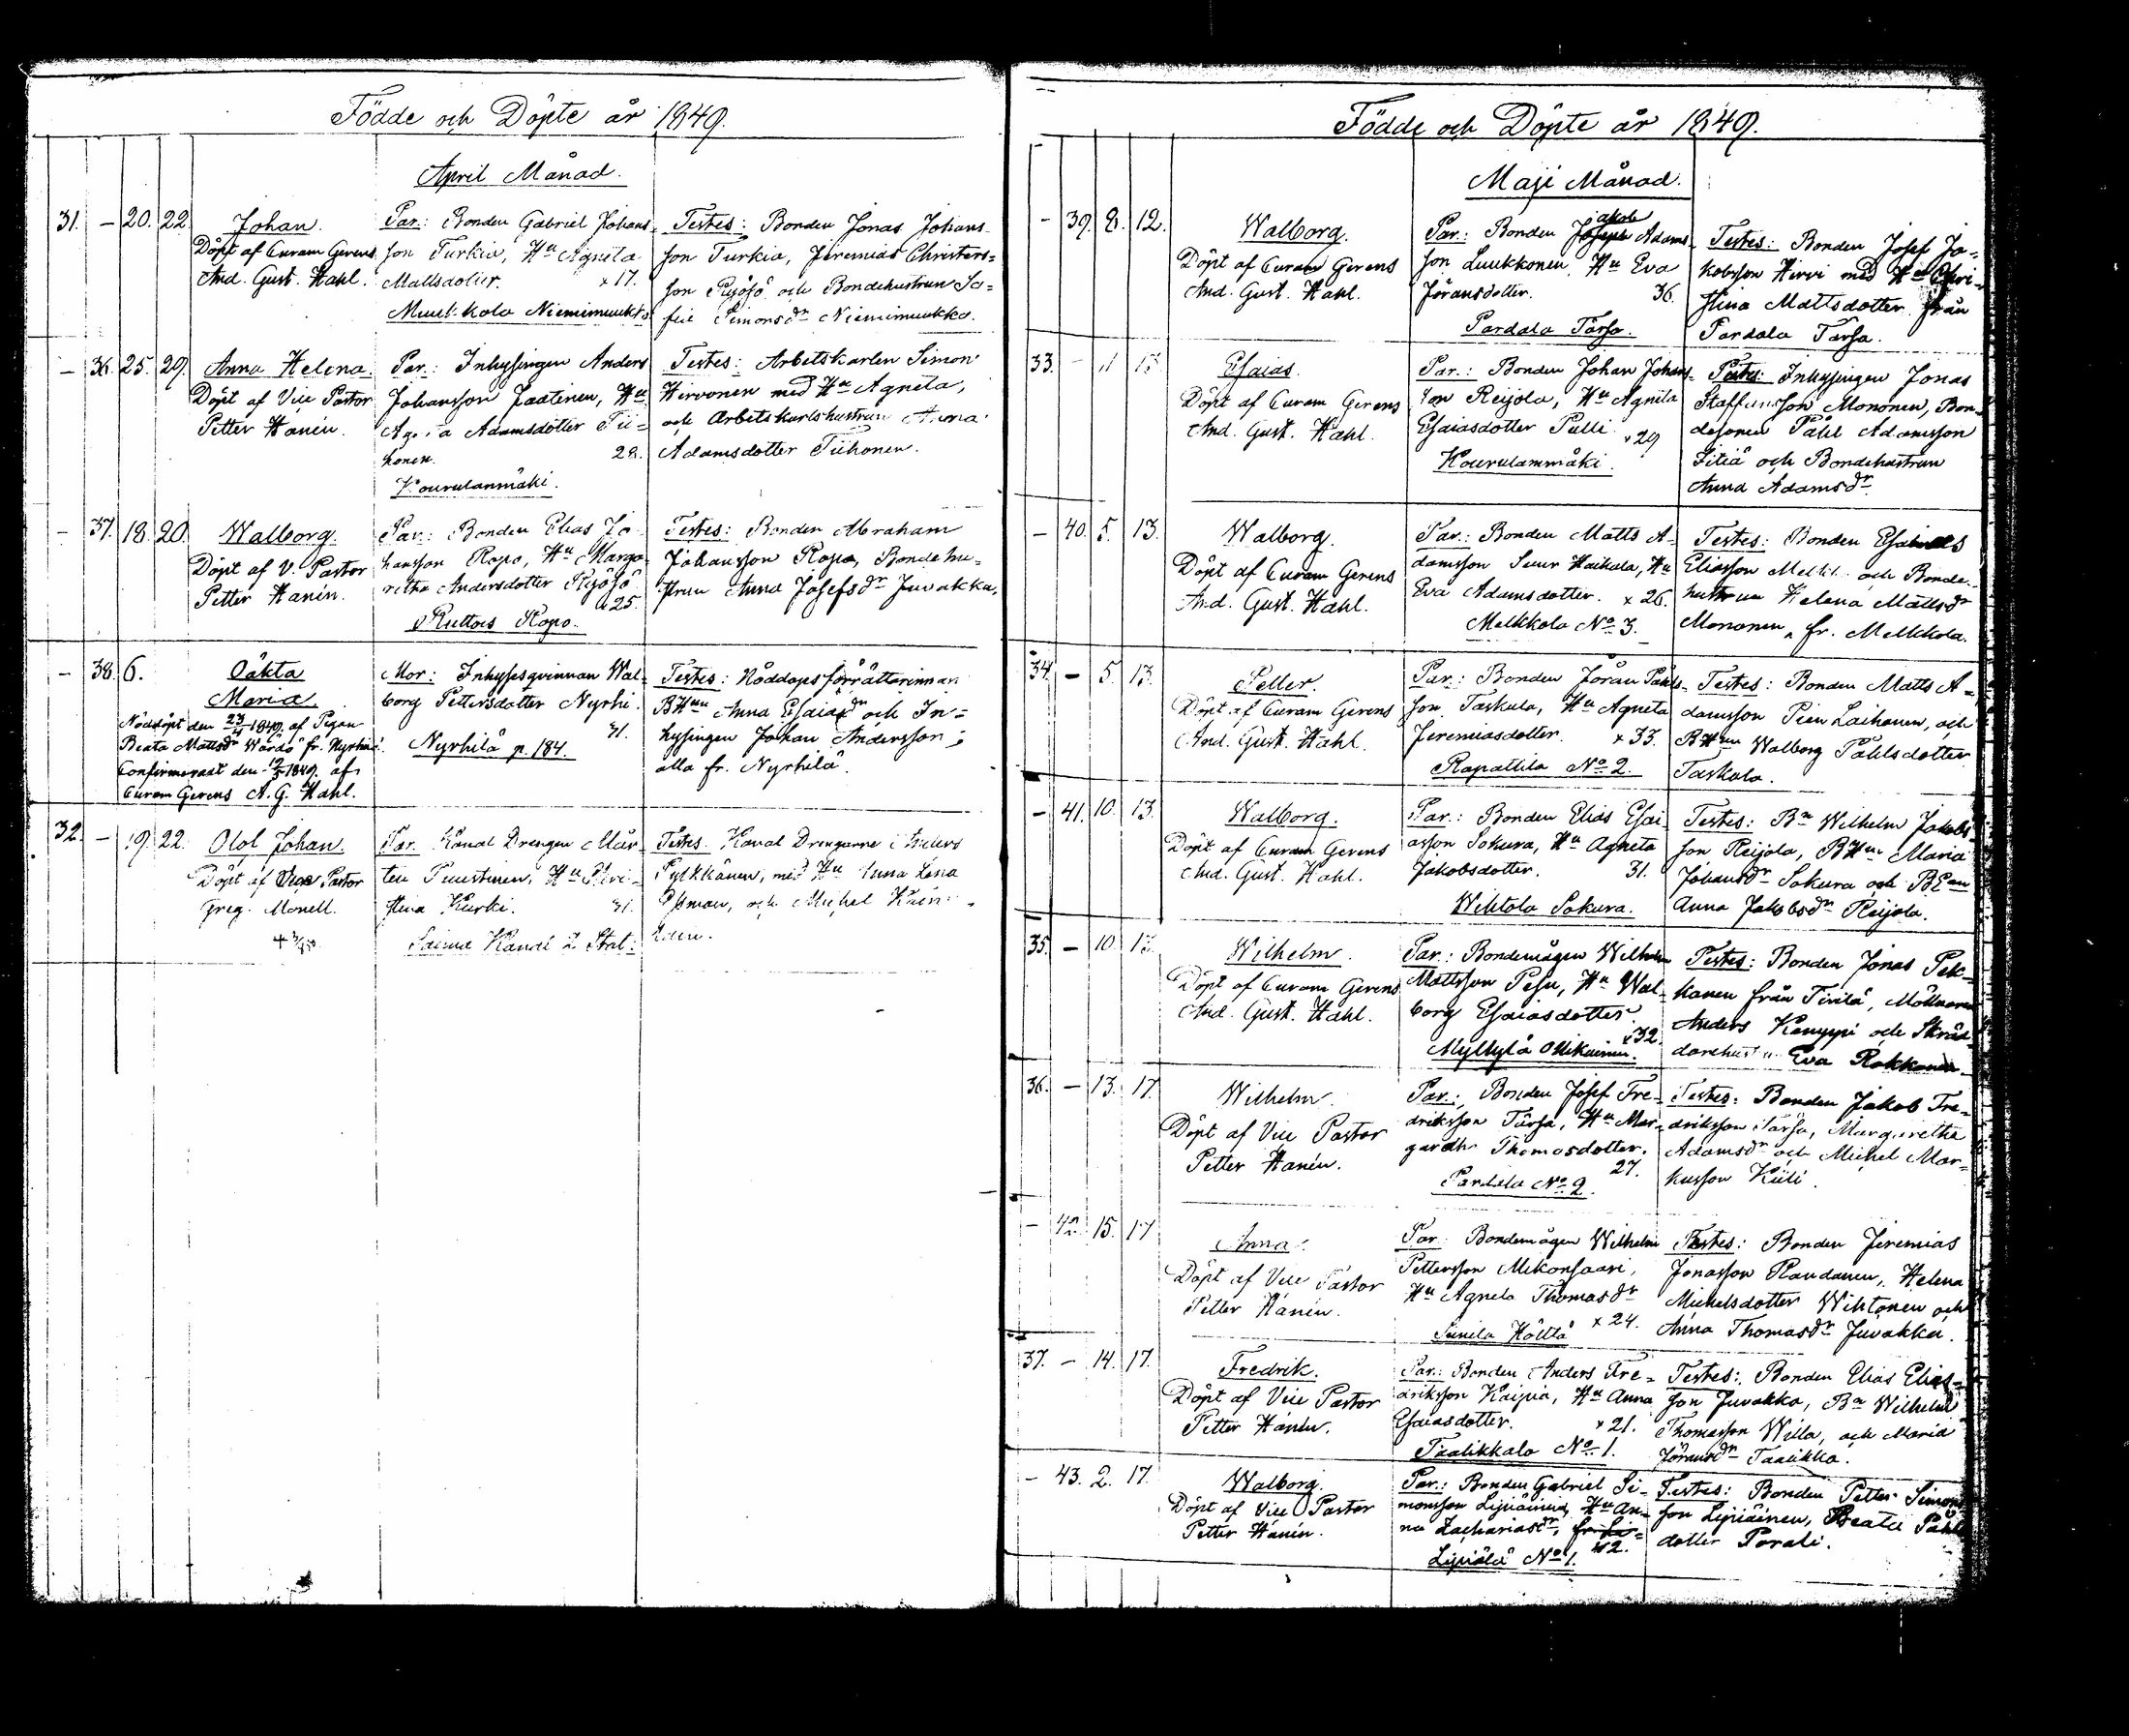 Födde och Döpte år 1849.
April Månad.
31. – 20. 22. Johan.
Döpt af Curam Gerens
And. Gust. Hahl.
Par.: Bonden Gabriel Johans-
son Turkia, Hu Agneta
Mattsdotter. x 17.
Muukkola Niemimuukko
Testes: Bonden Jonas Johans-
son Turkia, Jeremias Christers=
son Pejöjö och Bondehustrun So=
fie Simonsdr Niemimuukko.
– 36. 25. 29. Anna Helena.
Döpt af Vice Pastor
Petter Hanén.
Par.: Inhysingen Anders
Johansson Laatinen, Hu
Adamsdotter Tii=
honen. 28.
Kourulanmäki.
Testes: Arbetskarlen Simon
Hirvonen med Hu Agneta,
och Arbetskarlshustrun Anna
Adamsdotter Tiihonen.
– 37. 18. 20. Walborg.
Döpt af V. Pastor
Petter Hanén.
Par.: Bonden Elias Jo-
hansson Ropo, Hu Marga-
retha Andersdotter
25.
Ruttois Ropo.
Testes: Bonden Abraham
Johansson Ropo, Bondehu-
strun Anna Josefsdr Juvakka.
– 38. 6. Oäkta
Maria.
Döpt den 23/4 1849. af Pigan
Beata Mattsdr Wärdö fr. Nyrhilä.
Confirmeradt den 19/5 1849. af
Curam Gerens A. G. Hahl.
Mor: Inhysesqvinnan Wal-
borg Pettersdotter Nyrhi.
31.
Nyrhilä p. 184.
Testes: Nöddopsförrätterinnan
BHun Anna Esaiaedr och In=
hysingen Johan Andersson;
alla fr. Nyrhilä.
32. – 19. 22. Olof Johan.
Döpt af Vice Pastor
Greg. Monell.
Par. Kanal Drengen Mår-
ten Puustinen, Hu Chri-
stina Kurki. 31.
Saima Kanal 2 Stat:
Testes. Kanal Drengarne Anders
Pylkkänen, med Hu Anna Lena
och Michel
Födde och Döpte år 1849.
Maji Månad.
– 39. 8. 12. Walborg.
Döpt af Curam Gerens
And. Gust. Hahl.
akob
Par.: Bonden Joseph Adams-
son Luukkonen, Hu Eva
Jöransdotter. 36.
Pardala Tarsa.
Testes: Bonden Josef Ja=
kobsson Hirvi med Hu Chri-
stina Mattsdotter från
Pardala Tarsa.
33. – 11 13. Esaias.
Döpt af Curam Gerens
And. Gust. Hahl.
Par.: Bonden Johan Johans-
son Reijola, Hu Agneta
Esaiasdotter Pulli. x 29
Kourulanmäki.
Testes: Inhysingen Jonas
Staffansson Mononen, Bon-
desonen Påhl Adamsson
Sitiä och Bondehustrun
Anna Adamsdr
– 40. 5. 13. Walborg.
Döpt af Curam Gerens
And. Gust. Hahl.
Par.: Bonden Matts A-
damsson Suur Haikala, Hu
Eva Adamsdotter. x 26.
Melkkola No 3.
Testes: Bonden
Eliasson Melkk och Bonde-
hustrun Helena Mattsdr
Mononen, fr. Melkkola.
34. – 5. 13. Petter.
Döpt af Curam Gerens
And. Gust. Hahl.
Par.: Bonden Jöran Påhls-
son Taskula, Hu Agneta
Jeremiasdotter. x 33.
Rapattila No 2.
Testes: Bonden Matts A=
damsson Pien Laihanen, och
BHun Walborg Påhlsdotter
Taskula.
– 41. 10. 13. Walborg.
Döpt af Curam Gerens
And. Gust. Hahl.
Par.: Bonden Elias Esai-
asson Sokura, Hu Agneta
Jakobsdotter. 31.
Wihtola Sokura.
Testes: Bn Wilhelm Jakobs
son Reijola, BHun Maria
Johansdr Sokura och
Anna Jakobsdr Reijola.
35. – 10. 13. Wilhelm.
Döpt af Curam Gerens
And. Gust. Hahl.
Par.: Bondemågen Wilhelm
Mattsson Pesu, Hu Wal-
borg Esaiasdotter.
x 32.
Myllylä Ollikainen.
Testes: Bonden Jonas Pek-
kanen från Tiviä, Möllnaren
Anders Kemppi och Skräd-
darehustrun Eva Rokkanen.
36. – 13. 17. Wilhelm.
Döpt af Vice Pastor
Petter Hanén.
Par.: Bonden Josef Fre-
driksson Tarsa, Hu Mar-
gareth. Thomasdotter.
27.
Pardala No 2.
Testes: Bonden Jakob Fre-
driksson Tarsa, Margaretha
Adamsdr och Michel Mar-
kusson Kiili.
– 42. 15. 17 Anna.
Döpt af Vice Pastor
Petter Hanén.
Par. Bondemågen Wilhelm
Pettersson Mikonsaari,
Hu Agneta Thomasdr
x 24.
Sunila Hölttä
Testes: Bonden Jeremias
Jonasson Randanen, Helena
Michelsdotter Wihtonen och
Anna Thomasdr Juvakka.
37. – 14. 17. Fredrik.
Döpt af Vice Pastor
Petter Hanén.
Par.: Bonden Anders Fre=
driksson Kaipia, Hu Anna
Esaiasdotter. x 21.
Taalikkala No 1.
Testes: Bonden Elias Elias=
son Juvakka, Bn Wilhelm
Thomasson Willa, och Maria
Jöransdr Taalikka.
– 43. 2. 17. Walborg.
Döpt af Vice Pastor
Petter Hanén.
Par.: Bonden Gabriel Si-
monsson Lipiäinen, Hu An-
na Zachariasdr,
42.
Lipiälä No 1.
Testes: Bonden Petter Simons
son Lipiäinen, Beata Påhls
dotter Porali.